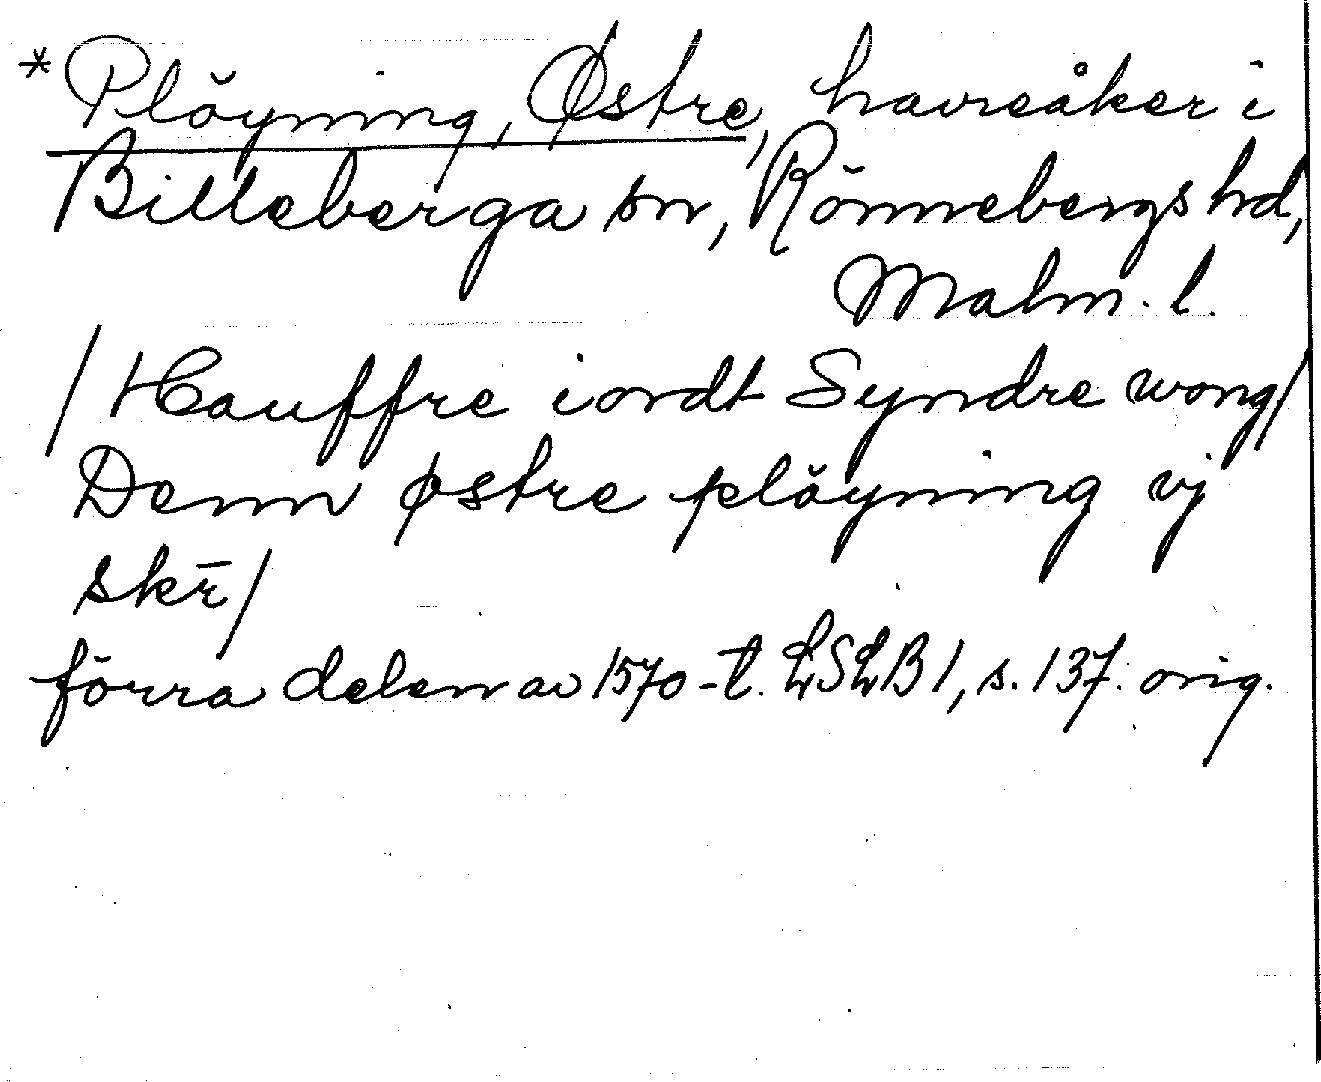 * Plöyning, Østre, havreåker i
Billeberga sn, Rönnebergs hd,
Malm. l.
/Hauffre iordt Syndre wong/
Denn østre plöyning vj
skr̄/
förra delen av 1570-t. LSLB 1, s. 137. orig.